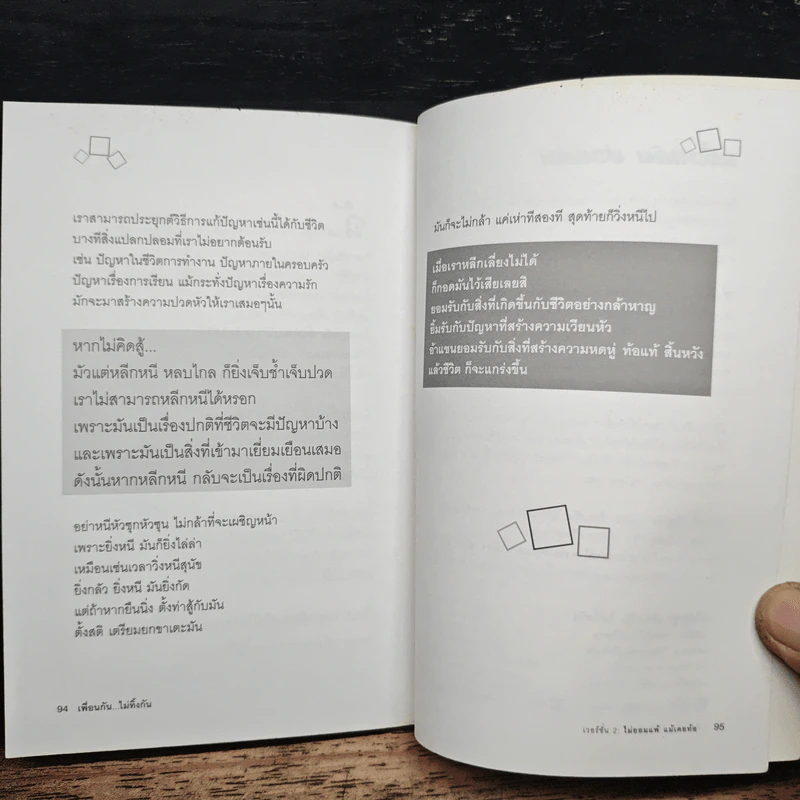 เราสามารถประยุกต์วิธีการแก้ปัญหาเช่นนี้ได้กับชีวิต
บางทีสิ่งแปลกปลอมที่เราไม่อยากต้อนรับ
เช่น ปัญหาในชีวิตการทำงาน ปัญหาภายในครอบครัว
ปัญหาเรื่องการเรียน แม้กระทั่งปัญหาเรื่องความรัก
มักจะมาสร้างความปวดหัวให้เราเสมอๆนั้น
หากไม่คิดสู้...
มัวแต่หลีกหนี หลบไกล ก็ยิ่งเจ็บช้ำเจ็บปวด
เราไม่สามารถหลีกหนีได้หรอก
เพราะมันเป็นเรื่องปกติที่ชีวิตจะมีปัญหาบ้าง
และเพราะมันเป็นสิ่งที่เข้ามาเยี่ยมเยือนเสมอ
ดังนั้นหากหลีกหนี กลับจะเป็นเรื่องที่ผิดปกติ
อย่าหนีหัวซุกหัวซุน ไม่กล้าที่จะเผชิญหน้า
เพราะยิ่งหนี มันก็ยิ่งไล่ล่า
เหมือนเช่นเวลาวิ่งหนีสุนัข
ยิ่งกลัว ยิ่งหนี มันยิ่งกัด
แต่ถ้าหากยืนนิ่ง ตั้งท่าสู้กับมัน
ตั้งสติ เตรียมยกขาเตะมัน
94 เพื่อนกัน...ไม่ทิ้งกัน
มันก็จะไม่กล้า แค่เห่าทีสองที สุดท้ายก็วิ่งหนีไป
เมื่อเราหลีกเลี่ยงไม่ได้
ก็กอดมันไว้เสียเลยสิ
ยอมรับกับสิ่งที่เกิดขึ้นกับชีวิตอย่างกล้าหาญ
ยิ้มรับกับปัญหาที่สร้างความเวียนหัว
อ้าแขนยอมรับกับสิ่งที่สร้างความหดหู่ ท้อแท้ สิ้นหวัง
แล้วชีวิต ก็จะแกร่งขึ้น
เวอร์ชั่น 2: ไม่ยอมแพ้ แม้เคยท้อ 95